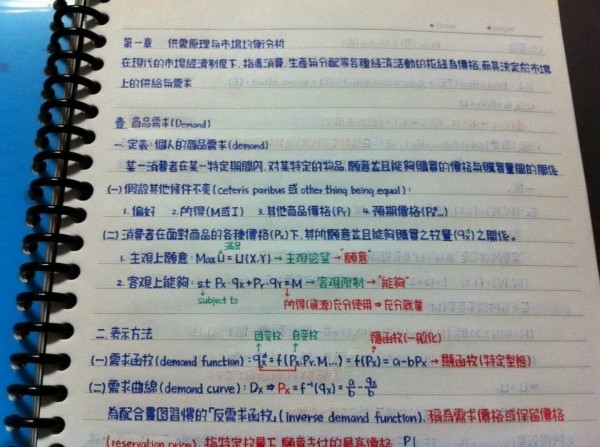 date: page:
第一章 供需原理与市場均衡分析
在現代的市場經濟制度下,指導消費、生產与分配等各種経済活動的枢紐為價格,而其決定於市場
上的供給与需求
壹.商品需求(Demand)
一.定義:個人的商品需求(demand)
某一消費者在某一特定期間内,对某特定的物品,願意並且能夠購買的價格与購買量間的関係
(一)假設其他條件不变(ceteris paribus 或 other thing being equal):
1.偏好 2.所得(M或I) 3.其他商品價格(Py) 4.預期價格(Pxe...)
(二)消費者在面對商品的各種價格(Px)下,其所願意並且能夠購買之数量(qxd)之関係。
滿足
1.主观上願意:Max U=U(X,Y)→主观慾望→"願意"
2.客观上能夠:s.t Px·qx+Py·qy=M→客观限制→"能夠"
subject to 所得(資源)充分使用⇒充分就業
二.表示方法 因变数 自变数 隱函数(一般化)
(一)需求函数(demand function):qxd=f(Px,Py,M...)=f(Px)=a-bPx→顯函数(特定型態)
(二)需求曲線(demand curve):Dx⇒Px=f-1(qx)=a/b-qx/b
為配合畫图習慣的「反需求函数」(inverse demand function),稱為需求價格或保留價格
(reservation price),指特定数量下,願意支付的最高價格 P|